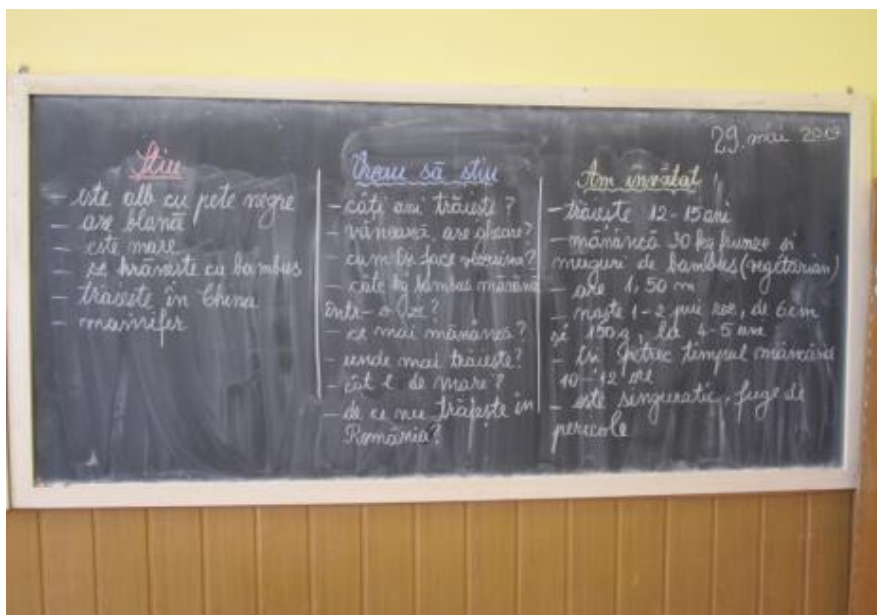 29. mai 2013
Știu
- este alb cu pete negre
- are blană
- este mare
- se hrănește cu bambus
- trăiește în China
- mamifer
Vreau să știu
- câți ani trăiește?
- vânează, are gheare?
- cum își face
- câte kg bambus mănâncă
într-o zi?
- ce mai mănâncă?
- unde mai trăiește?
- cât e de mare?
- de ce nu trăiește în
România?
Am învățat
- trăiește 12-15 ani
- mănâncă 30 kg frunze și
muguri de bambus (vegetarian)
- are 1,50 m
- naște 1-2 pui roz, de 6 cm
și 150 g, la 4-5 ani
- își petrec timpul mâncând
10-12 ore
- este singuratic, fuge de
pericole